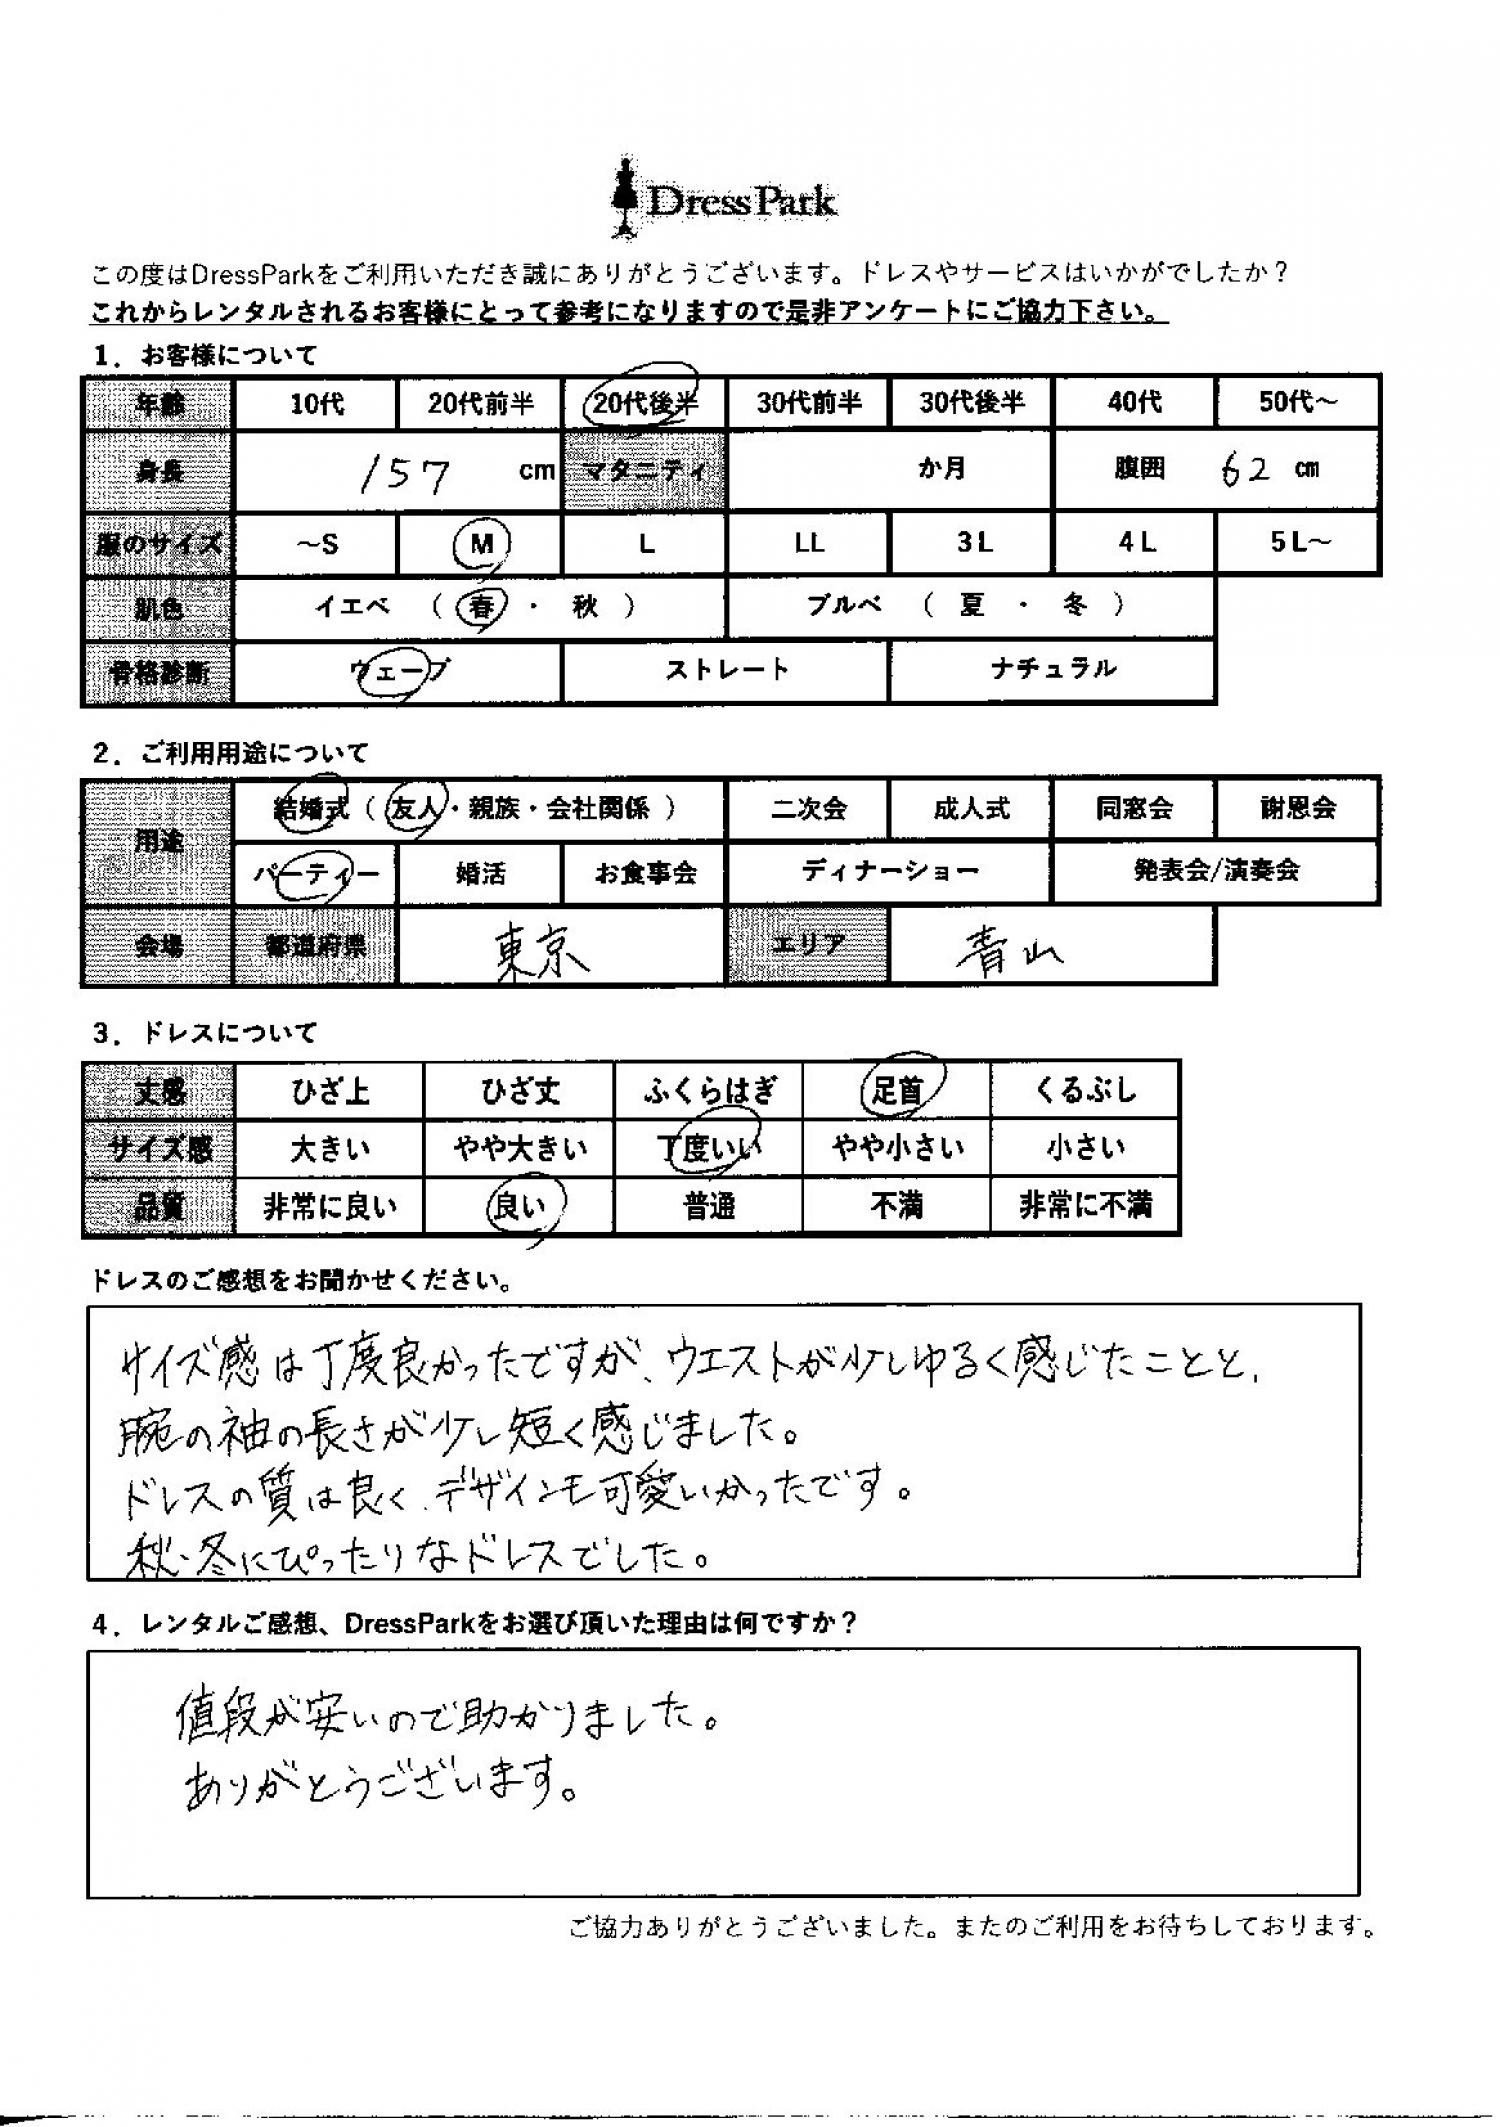 DressPark
この度はDressParkをご利用いただき誠にありがとうございます。ドレスやサービスはいかがでしたか？
これからレンタルされるお客様にとって参考になりますので是非アンケートにご協力下さい。
1．お客様について
年齢 10代 20代前半 20代後半 30代前半 30代後半 40代 50代～
身長 157 cm マタニティ か月 腹囲 62 cm
服のサイズ ～S M L LL 3L 4L 5L～
肌色 イエベ （ 春 ・ 秋 ） ブルベ （ 夏 ・ 冬 ）
骨格診断 ウェーブ ストレート ナチュラル
2．ご利用用途について
用途 結婚式（ 友人・親族・会社関係 ） 二次会 成人式 同窓会 謝恩会
パーティー 婚活 お食事会 ディナーショー 発表会/演奏会
会場 都道府県 東京 エリア 青山
3．ドレスについて
丈感 ひざ上 ひざ丈 ふくらはぎ 足首 くるぶし
サイズ感 大きい やや大きい 丁度いい やや小さい 小さい
品質 非常に良い 良い 普通 不満 非常に不満
ドレスのご感想をお聞かせください。
サイズ感は丁度良かったですが、ウエストが少しゆるく感じたことと、
腕の袖の長さが少し短く感じました。
ドレスの質は良く、デザインも可愛いかったです。
秋・冬にぴったりなドレスでした。
4．レンタルご感想、DressParkをお選び頂いた理由は何ですか？
値段が安いので助かりました。
ありがとうございます。
ご協力ありがとうございました。またのご利用をお待ちしております。